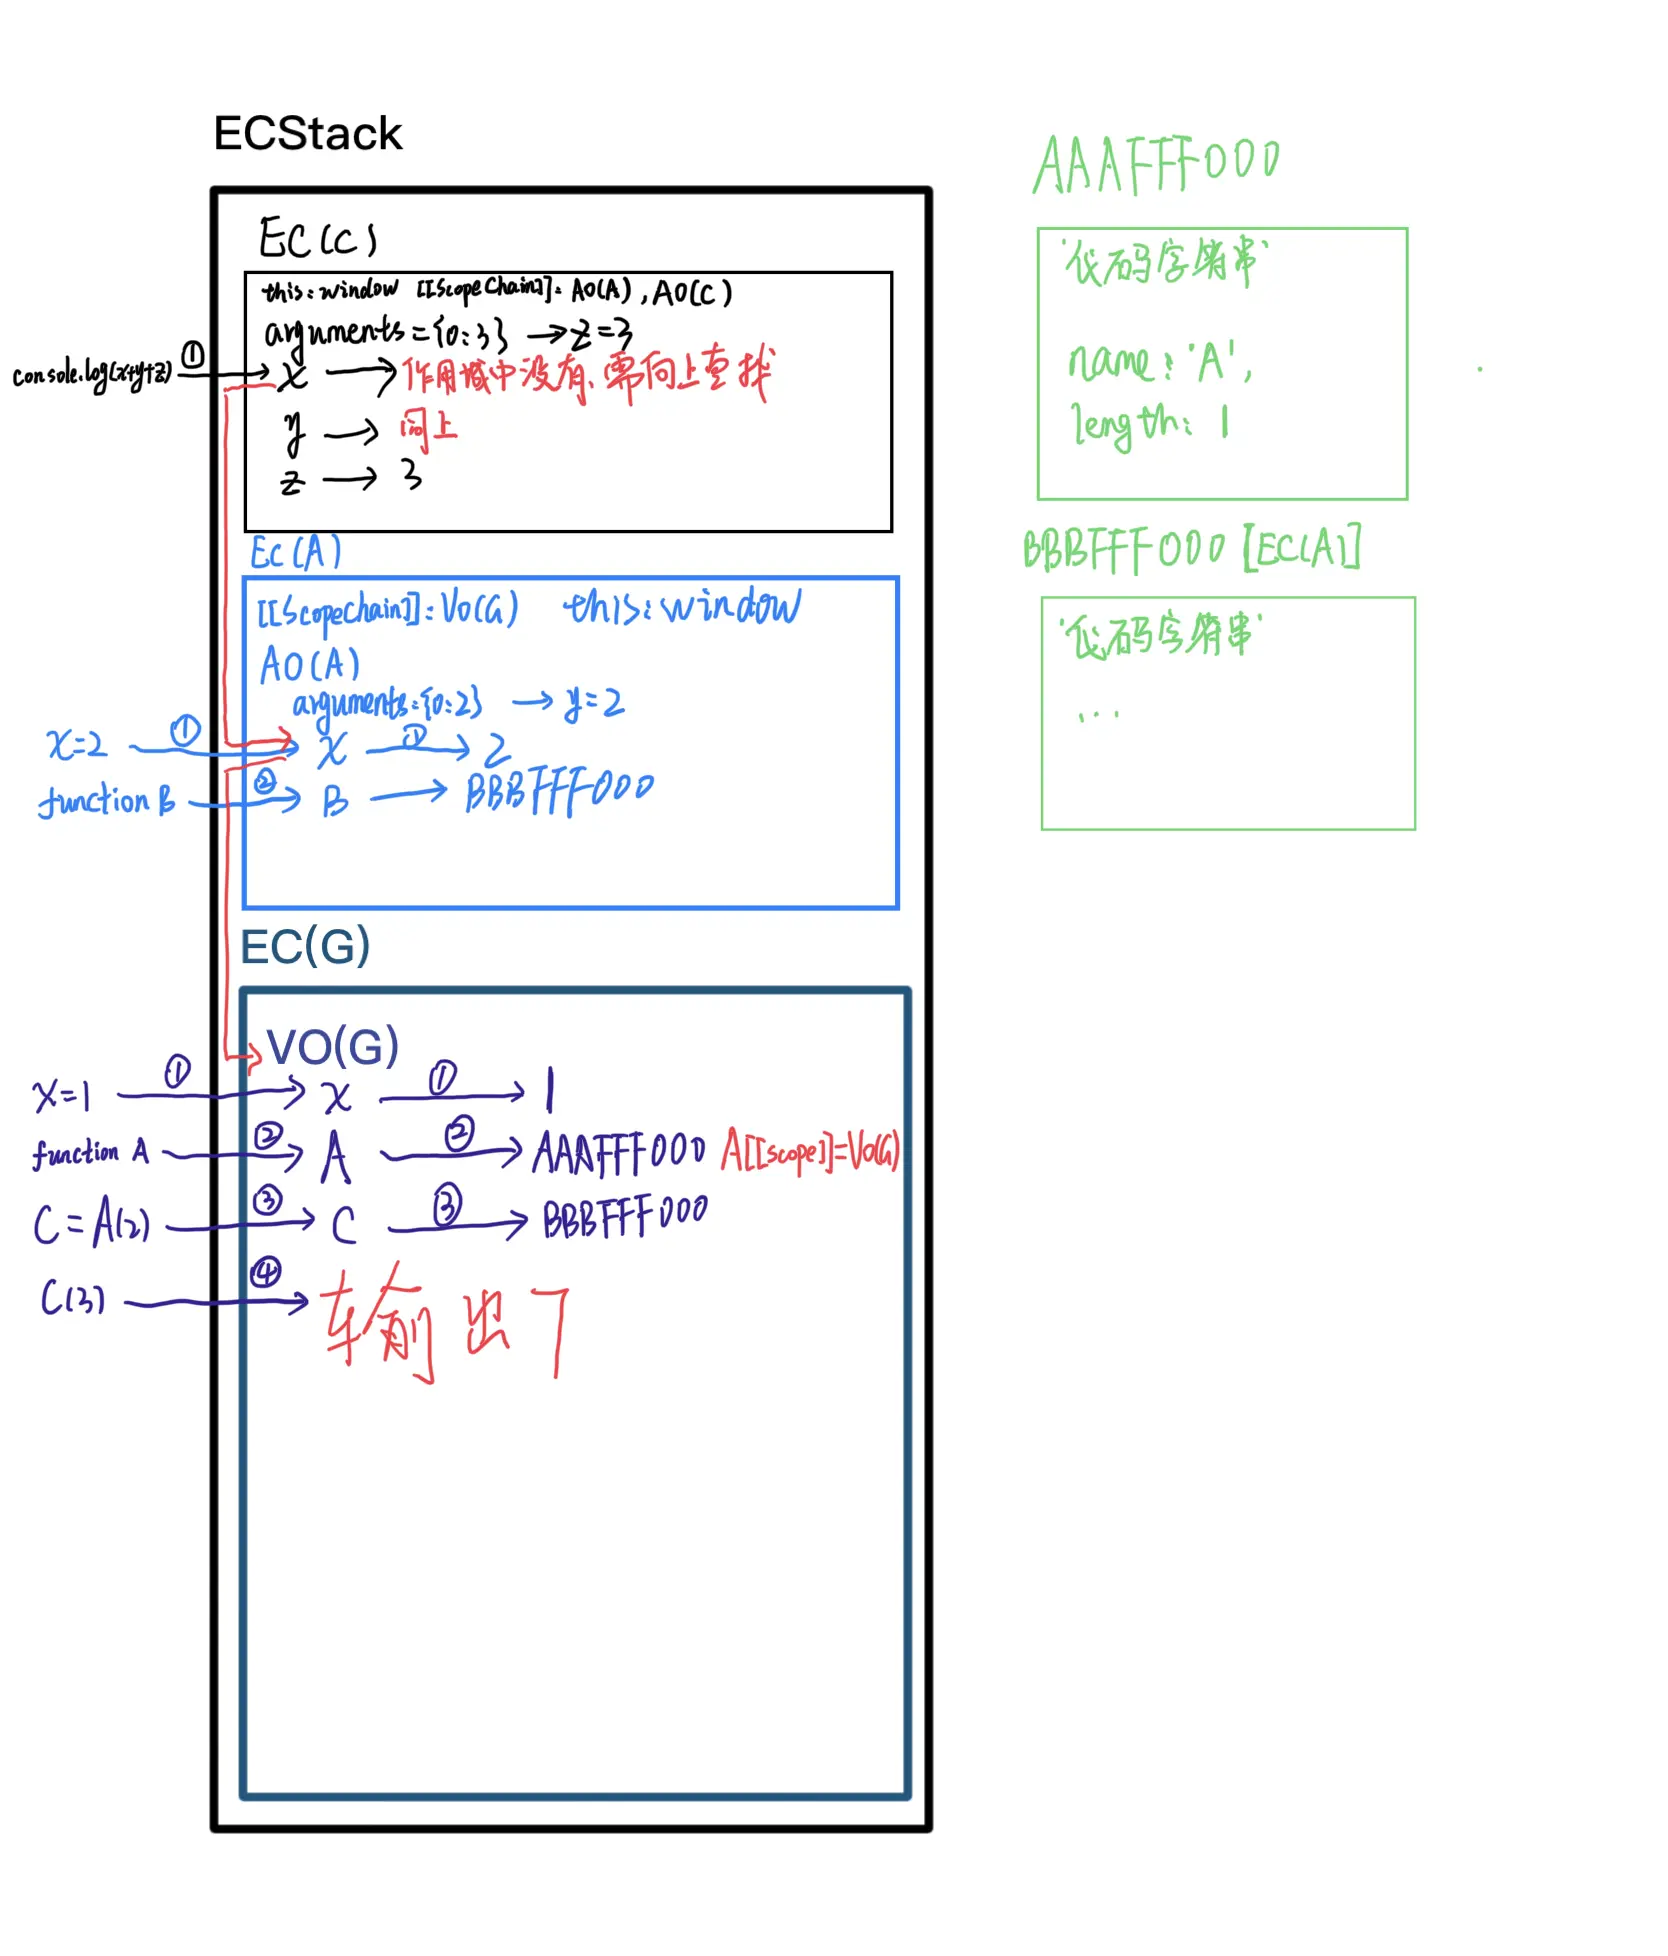 ECStack
EC(C)
this:window [[ScopeChain]]:AO(A),AO(C)
arguments={0:3} →z=3
console.log(x+y+z) ① x → 作用域中没有、需向上查找
y → 同上
z → 3
EC(A)
[[ScopeChain]]:VO(G) this:window
AO(A)
arguments:{0:2} → y=2
x=2 ① x ① 2
function B ② B → BBBFFF000
EC(G)
VO(G)
x=1 ① x ① 1
function A ② A ② AAAFFF000 A[[scope]]=VO(G)
C=A(2) ③ C ③ BBBFFF000
C(3) ④ 输出7
AAAFFF000
'代码字符串'
name:'A',
length:1
BBBFFF000 [EC(A)]
'代码字符串'
...